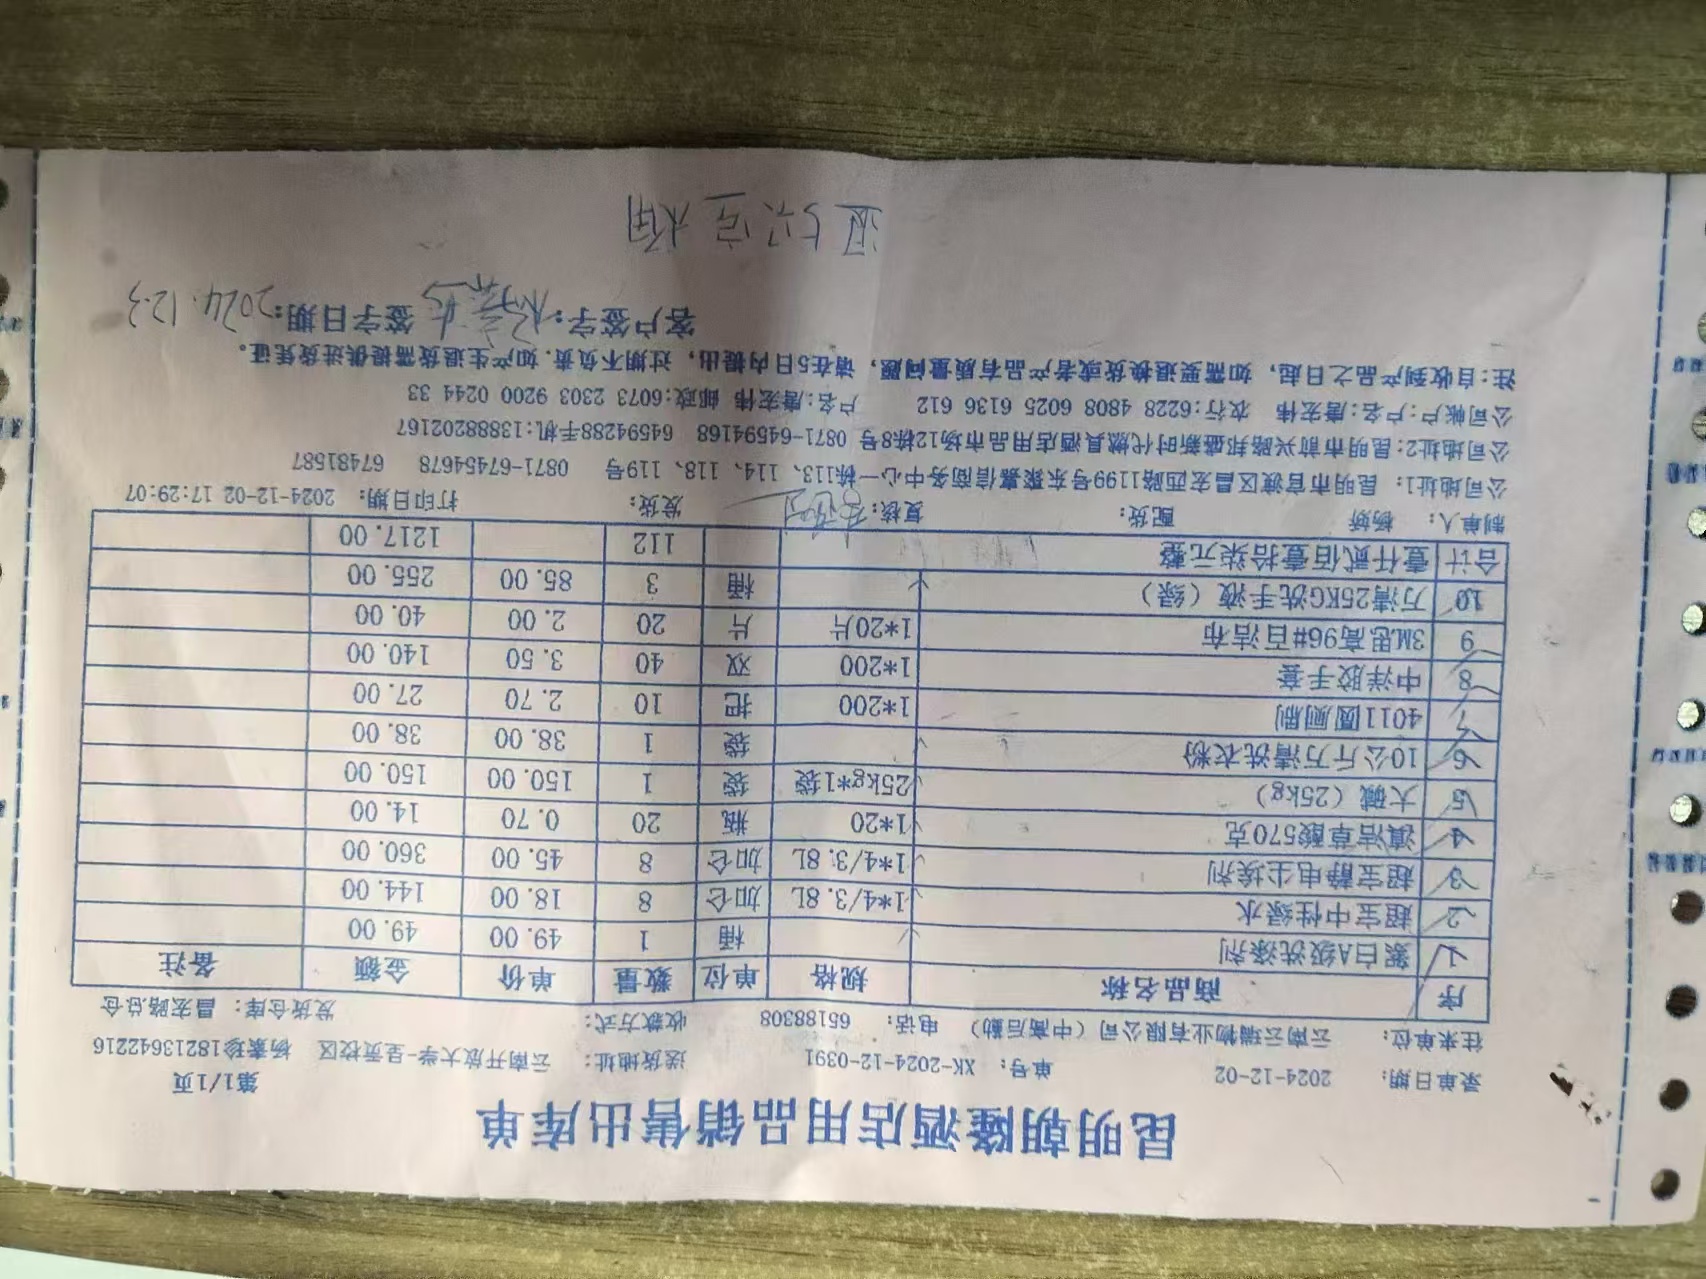 昆明朝隆酒店用品销售出库单
第1/1页
录单日期： 2024-12-02 单号： XK-2024-12-0391 送货地址： 云南开放大学-呈贡校区 杨素珍18213642216
往来单位： 云南云瑞物业有限公司（中高后勤） 电话： 65188308 收款方式： 发货仓库： 昌宏路总仓
序 商品名称 规格 单位 数量 单价 金额 备注
1 絮白A级洗涤剂 桶 1 49.00 49.00
2 超宝中性绿水 1*4/3.8L 加仑 8 18.00 144.00
3 超宝静电尘埃剂 1*4/3.8L 加仑 8 45.00 360.00
4 滇洁草酸570克 1*20 瓶 20 0.70 14.00
5 大碱（25kg） 25kg*1袋 袋 1 150.00 150.00
6 10公斤万清洗衣粉 袋 1 38.00 38.00
7 4011圆厕刷 1*200 把 10 2.70 27.00
8 中洋胶手套 1*200 双 40 3.50 140.00
9 3M思高96#百洁布 1*20片 片 20 2.00 40.00
10 万清25KG洗手液（绿） 桶 3 85.00 255.00
合计 壹仟贰佰壹拾柒元整 112 1217.00
制单人： 杨娇 配货： 复核： 发货： 打印日期： 2024-12-02 17:29:07
公司地址1： 昆明市官渡区昌宏西路1199号东聚鑫信商务中心一栋113、114、118、119号 0871-67454678 67481587
公司地址2：昆明市前兴路邦盛新时代燃具酒店用品市场12栋8号 0871-64594168 64594288手机:13888202167
公司帐户:户名:唐宏伟 农行:6228 4808 6025 6136 612 户名:唐宏伟 邮政:6073 2303 9200 0244 33
注：自收到产品之日起，如需要退换货或者产品有质量问题，请在5日内提出，过期不负责.如产生退货需提供进货凭证。
客户签字： 签字日期：2024.12.3